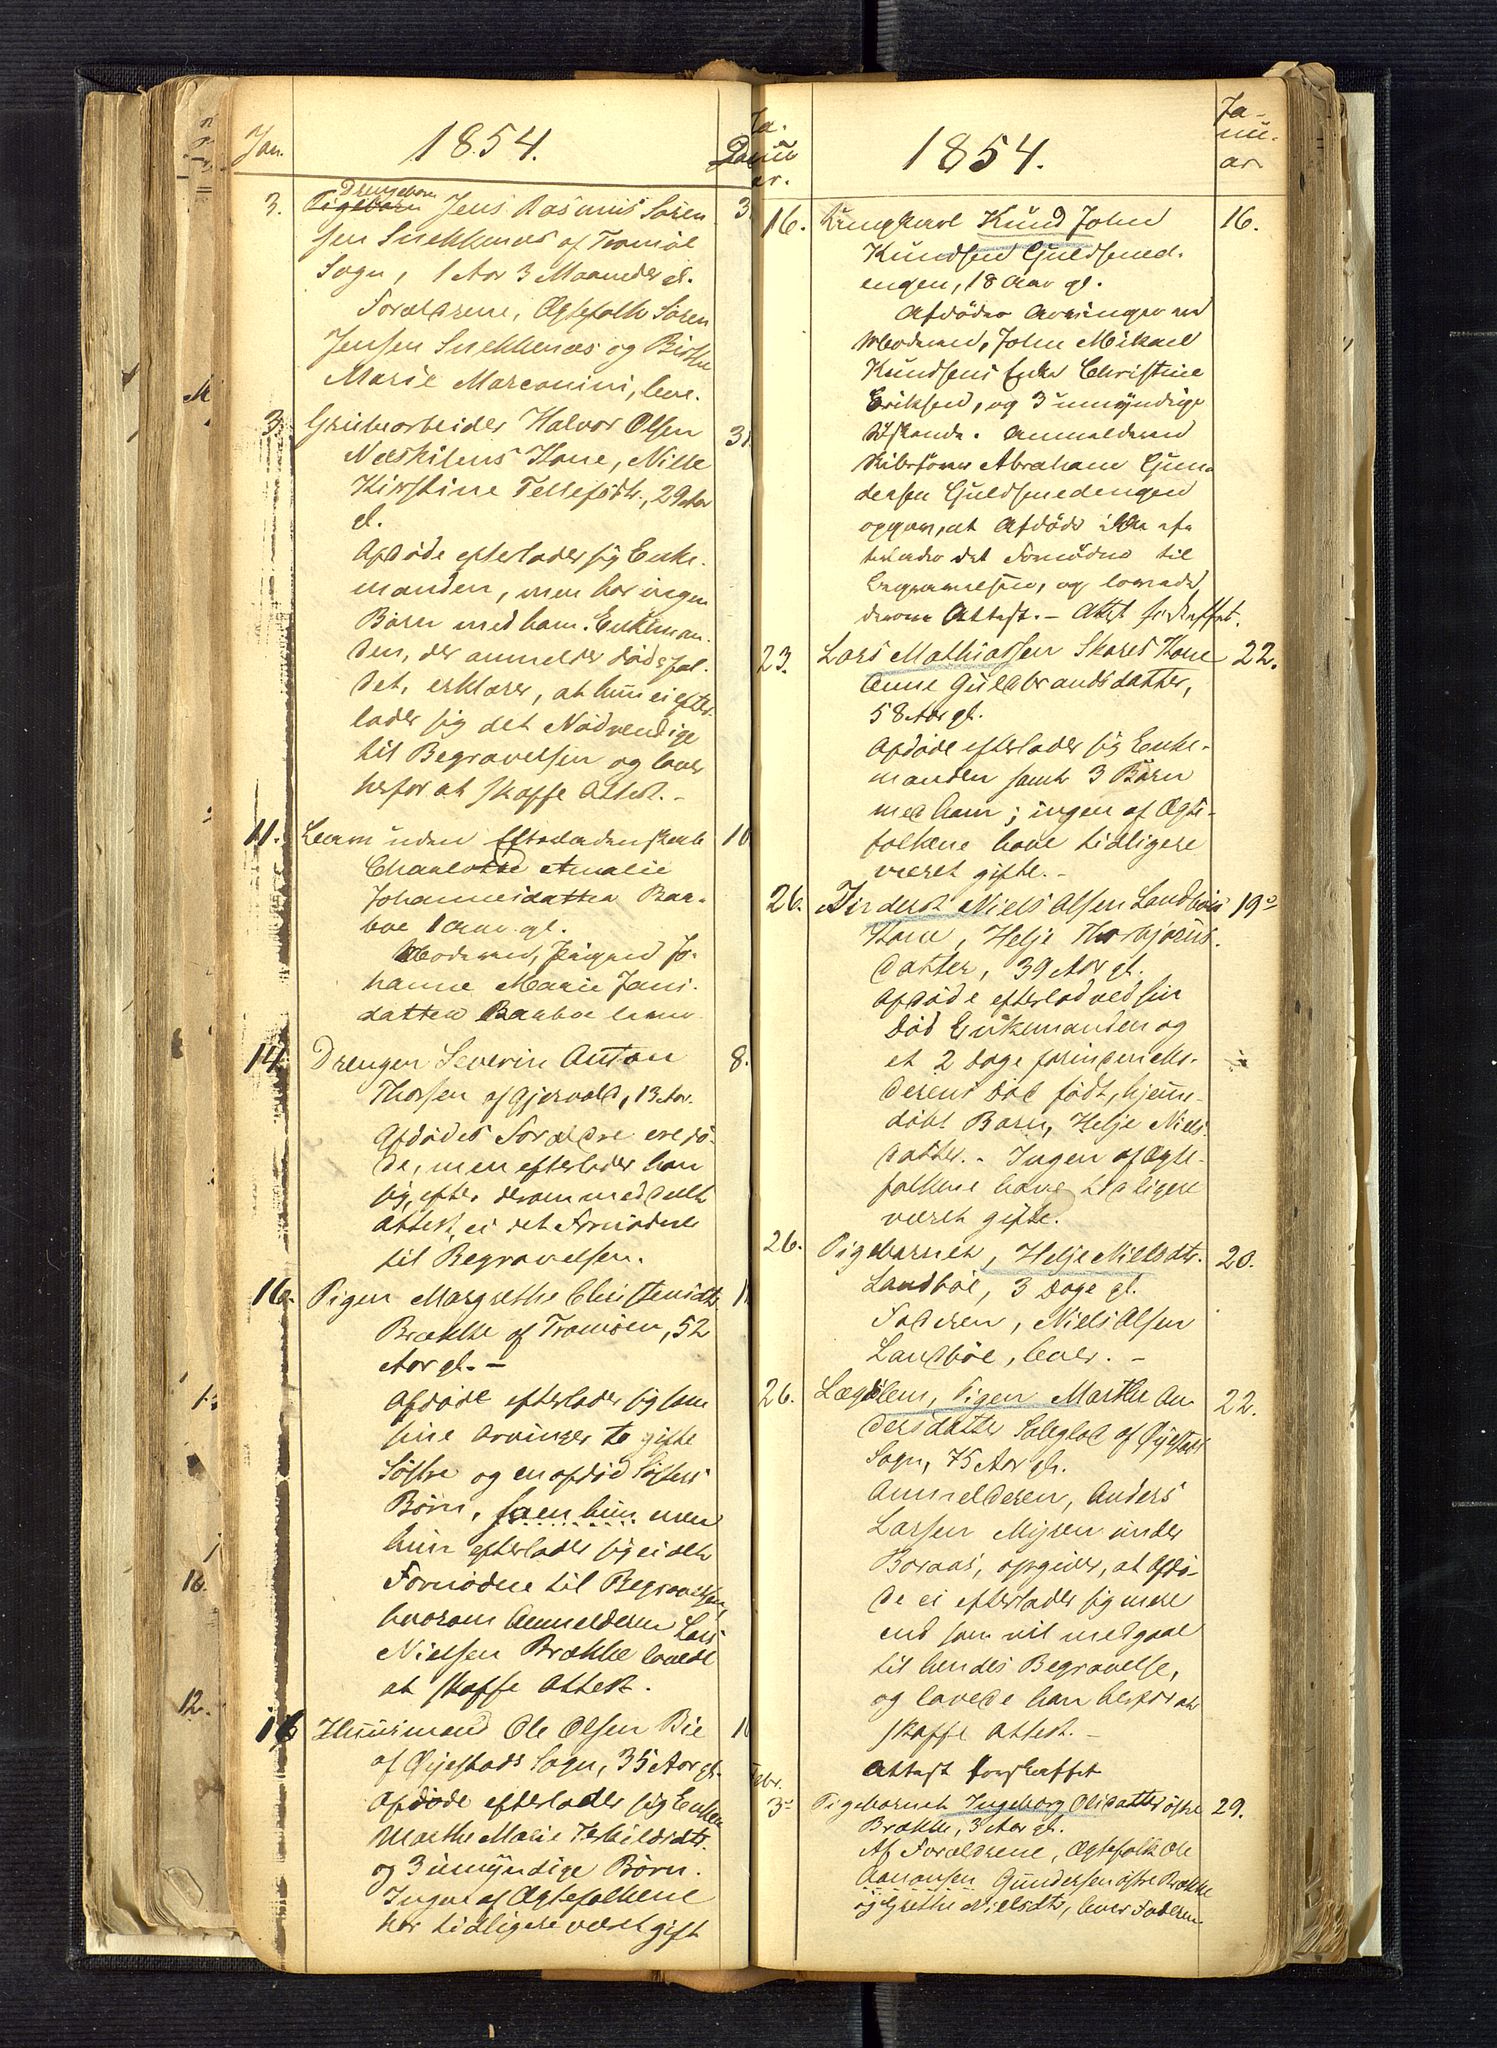 Jan.
1854.
Januar.
3. Drengebarn
Pigebarn Jens Rasmus Søren- 3.
sen Snekkenæs af Tromøe
Sogn, 1 Aar 3 Maaneder gl.
Forældrene, Ægtefolk Søren
Jensen Snekkenæs og Birthe
Marie Marconini, leve.
3. Grubearbeider Halvor Olsen 31
Næskilens Kone, Nille
Kirstine Tellefsdtr., 29 Aar
gl.
Afdøde efterlader sig Enke-
manden, men har ingen
Børn med ham. Enkeman-
den, der anmelder Dødsfal-
det, erklærer, at hun ei efter-
lader sig det Nødvendige
til Begravelsen og lover
herfor at skaffe Attest. -
11. Barn uden Ægteskab 10
Charlotte Amalie
Johannesdatter Bar-
boe 1 Aar gl.
Moderen, Pigen Jo-
hanne Marie Jans-
datter Barboe lever
14. Drengen Severin Anton 8.
Thorsen af Gjervold, 13 Aar.
Afdødes Forældre ere dø-
de, men efterlader han
sig, efter derom meddeelt
Attest, ei det Fornødne
til Begravelsen.
16. Pigen Margrethe Christensdtr. 11
Brække af Tromøen, 52
Aar gl. -
Afdøde efterlader sig som
sine Arvinger to gifte
Søstre og en afdød Søsters
Børn, som hun men
hun efterlader sig ei det
Fornødne til Begravelsen,
hvorom Anmelderen Lars
Nielsen Brække lovede
at skaffe Attest.
16 Huusmand Ole Olsen Bie 10
af Øyestads Sogn, 35 Aar gl.
Afdøde efterlader sig Enken
Marthe Marie Terkildsdtr.
og 3 umyndige Børn.
Ingen af Ægtefolkene
har tidligere været gift
1854.
Januar
16. Ungkarl Knud John 16.
Knudsen Guldsmed-
engen, 18 Aar gl.
Afdødes Arvinger ere
Moderen, John Mikael
Knudsens Enke Christine
Eriksen, og 3 umyndige
Søskende. Anmelderen
Abraham Gun-
dersen Guldsmedengen
opgav, at Afdøde ikke efter
lader det Fornødne til
Begravelsen, og lovede
derom Attest. - Attest er skaffet.
23. Lars Mathiassen Skares Kone 22.
Anne Guldbrandsdatter,
58 Aar gl.
Afdøde efterlader sig Enke-
manden samt 3 Børn
med ham; ingen af Ægte-
folkene have tidligere
været gifte. -
26. Inderst Niels Olsen Landbøes 19de
Kone, Helje Thorbjørns-
datter, 39 Aar gl.
Afdøde efterlod ved sin
Død Enkemanden og
et 2 Dage forinden
Død født, hjemme-
døbt Barn, Helje Niels-
datter. - Ingen af Ægte-
folkene have tidligere
været gifte.
26. Pigebarnet, Helje Nielsdtr. 20.
Landbøe, 3 Dage gl.
Faderen, Niels Olsen
Landbøe, lever. -
26. Lægdslem, Pigen Marthe An- 22.
dersdatter Soleglad af Øyestads
Sogn, 75 Aar gl.
Anmelderen, Anders
Larsen Myren under
Boraas, opgiver, at Afdø-
de ei efterlader sig mere
end som vil medgaae
til hendes Begravelse,
og lovede han herfor at
skaffe Attest. -
Attest forskaffet
Febr.
3de Pigebarnet Ingeborg Olsdatter østre 29.
Brække, 3 Aar gl.
Af Forældrene, Ægtefolk Ole
Aanonsen Gundersen østre Brække
og Grethe Nielsdtr., lever Faderen.